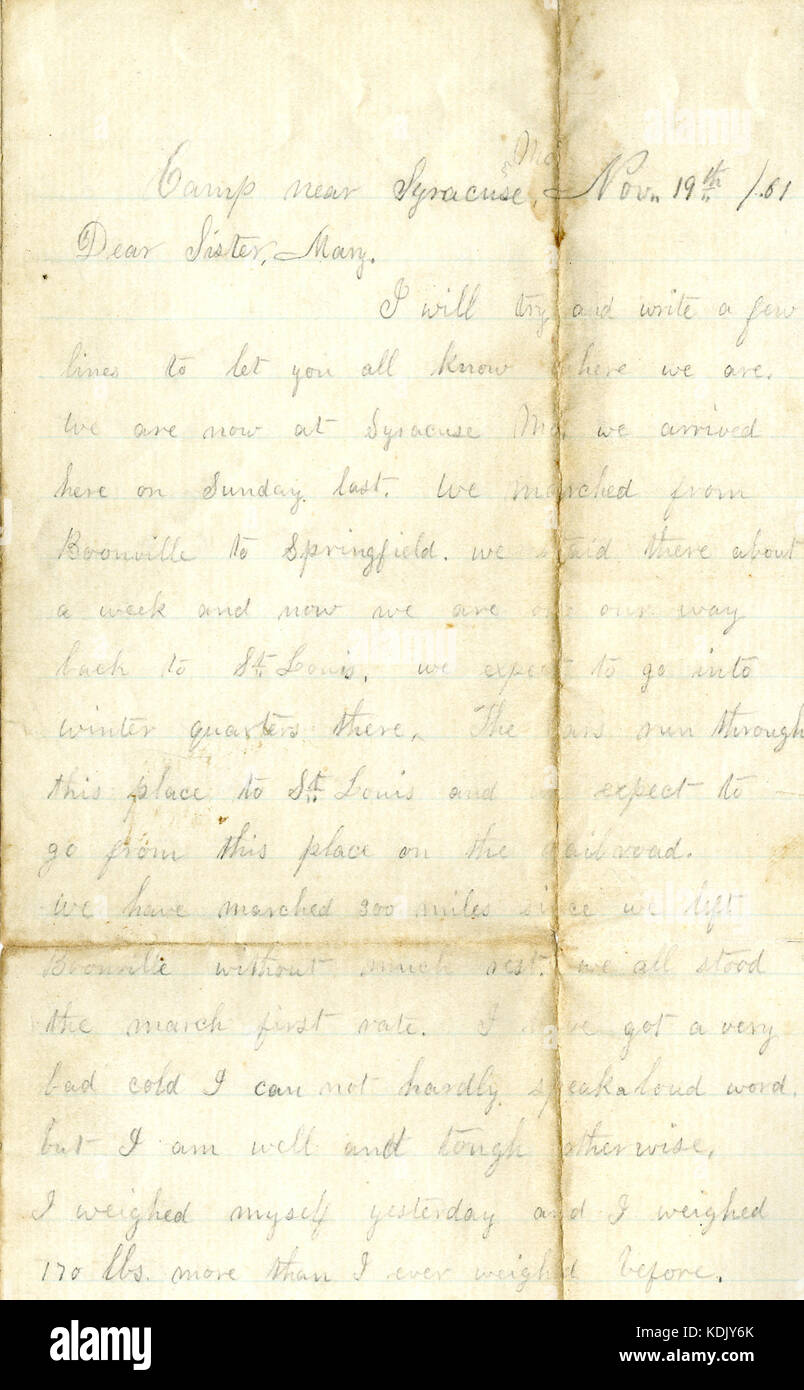 Mo
Camp near Syracuse, Nov. 19th /.61
Dear Sister, Mary.
I will try and write a few
lines to let you all know where we are.
We are now at Syracuse Mo. we arrived
here on Sunday last. We marched from
Boonville to Springfield. we staid there about
a week and now we are on our way
back to St. Louis. we expect to go into
winter quarters there. The cars run through
this place to St. Louis and we expect to
go from this place on the railroad.
We have marched 300 miles since we left
Boonville without much rest. we all stood
the march first rate. I have got a very
bad cold I can not hardly speak a loud word.
but I am well and tough otherwise.
I weighed myself yesterday and I weighed
170 lbs. more than I ever weighed before.
alamy
Image ID: KDJY6K
www.alamy.com